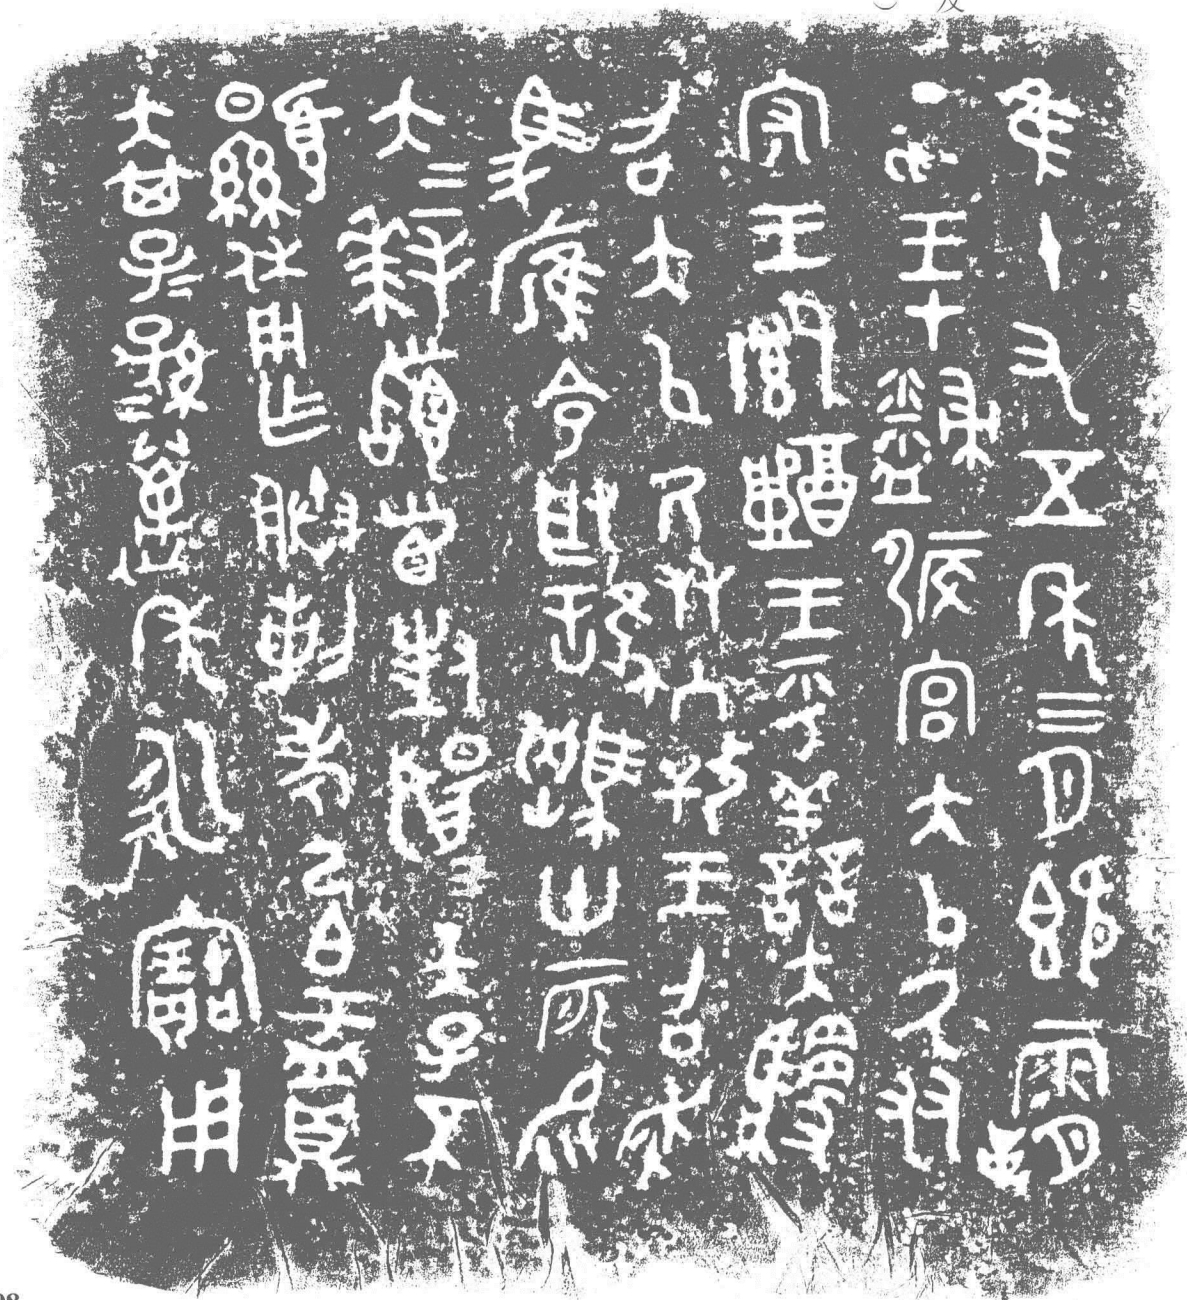 隹十又五年三月既霸
丁亥王才侲宮大以厥友
守王鄉醴王乎善夫騣
召大以厥友入攼王召走
馬雁令取騆卅二匹易
大=拜𩒨首對揚天子不
顯休用乍朕剌考己白盂鼎
大其子=孫=萬年永寶用